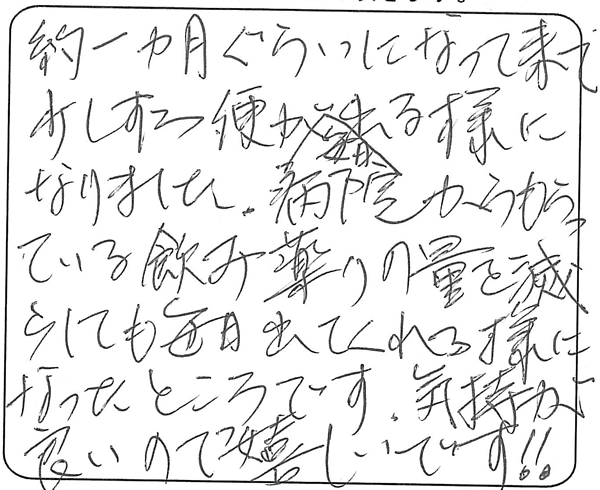 約一カ月ぐらいになって来て
少しずつ便が出る様に
なりました。病院からもらっ
ている飲み薬りの量を減
らしても毎日出てくれる様に
なったところです。気持が
良いので嬉しいです!!